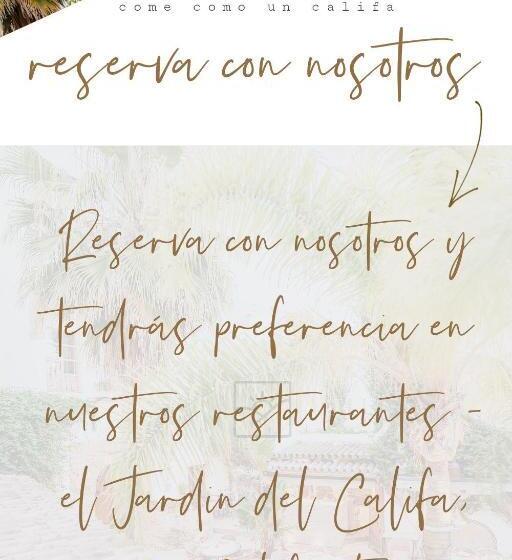 come como un califa
reserva con nosotros
Reserva con nosotros y
tendrás preferencia en
nuestros restaurantes -
el Jardin del Califa,